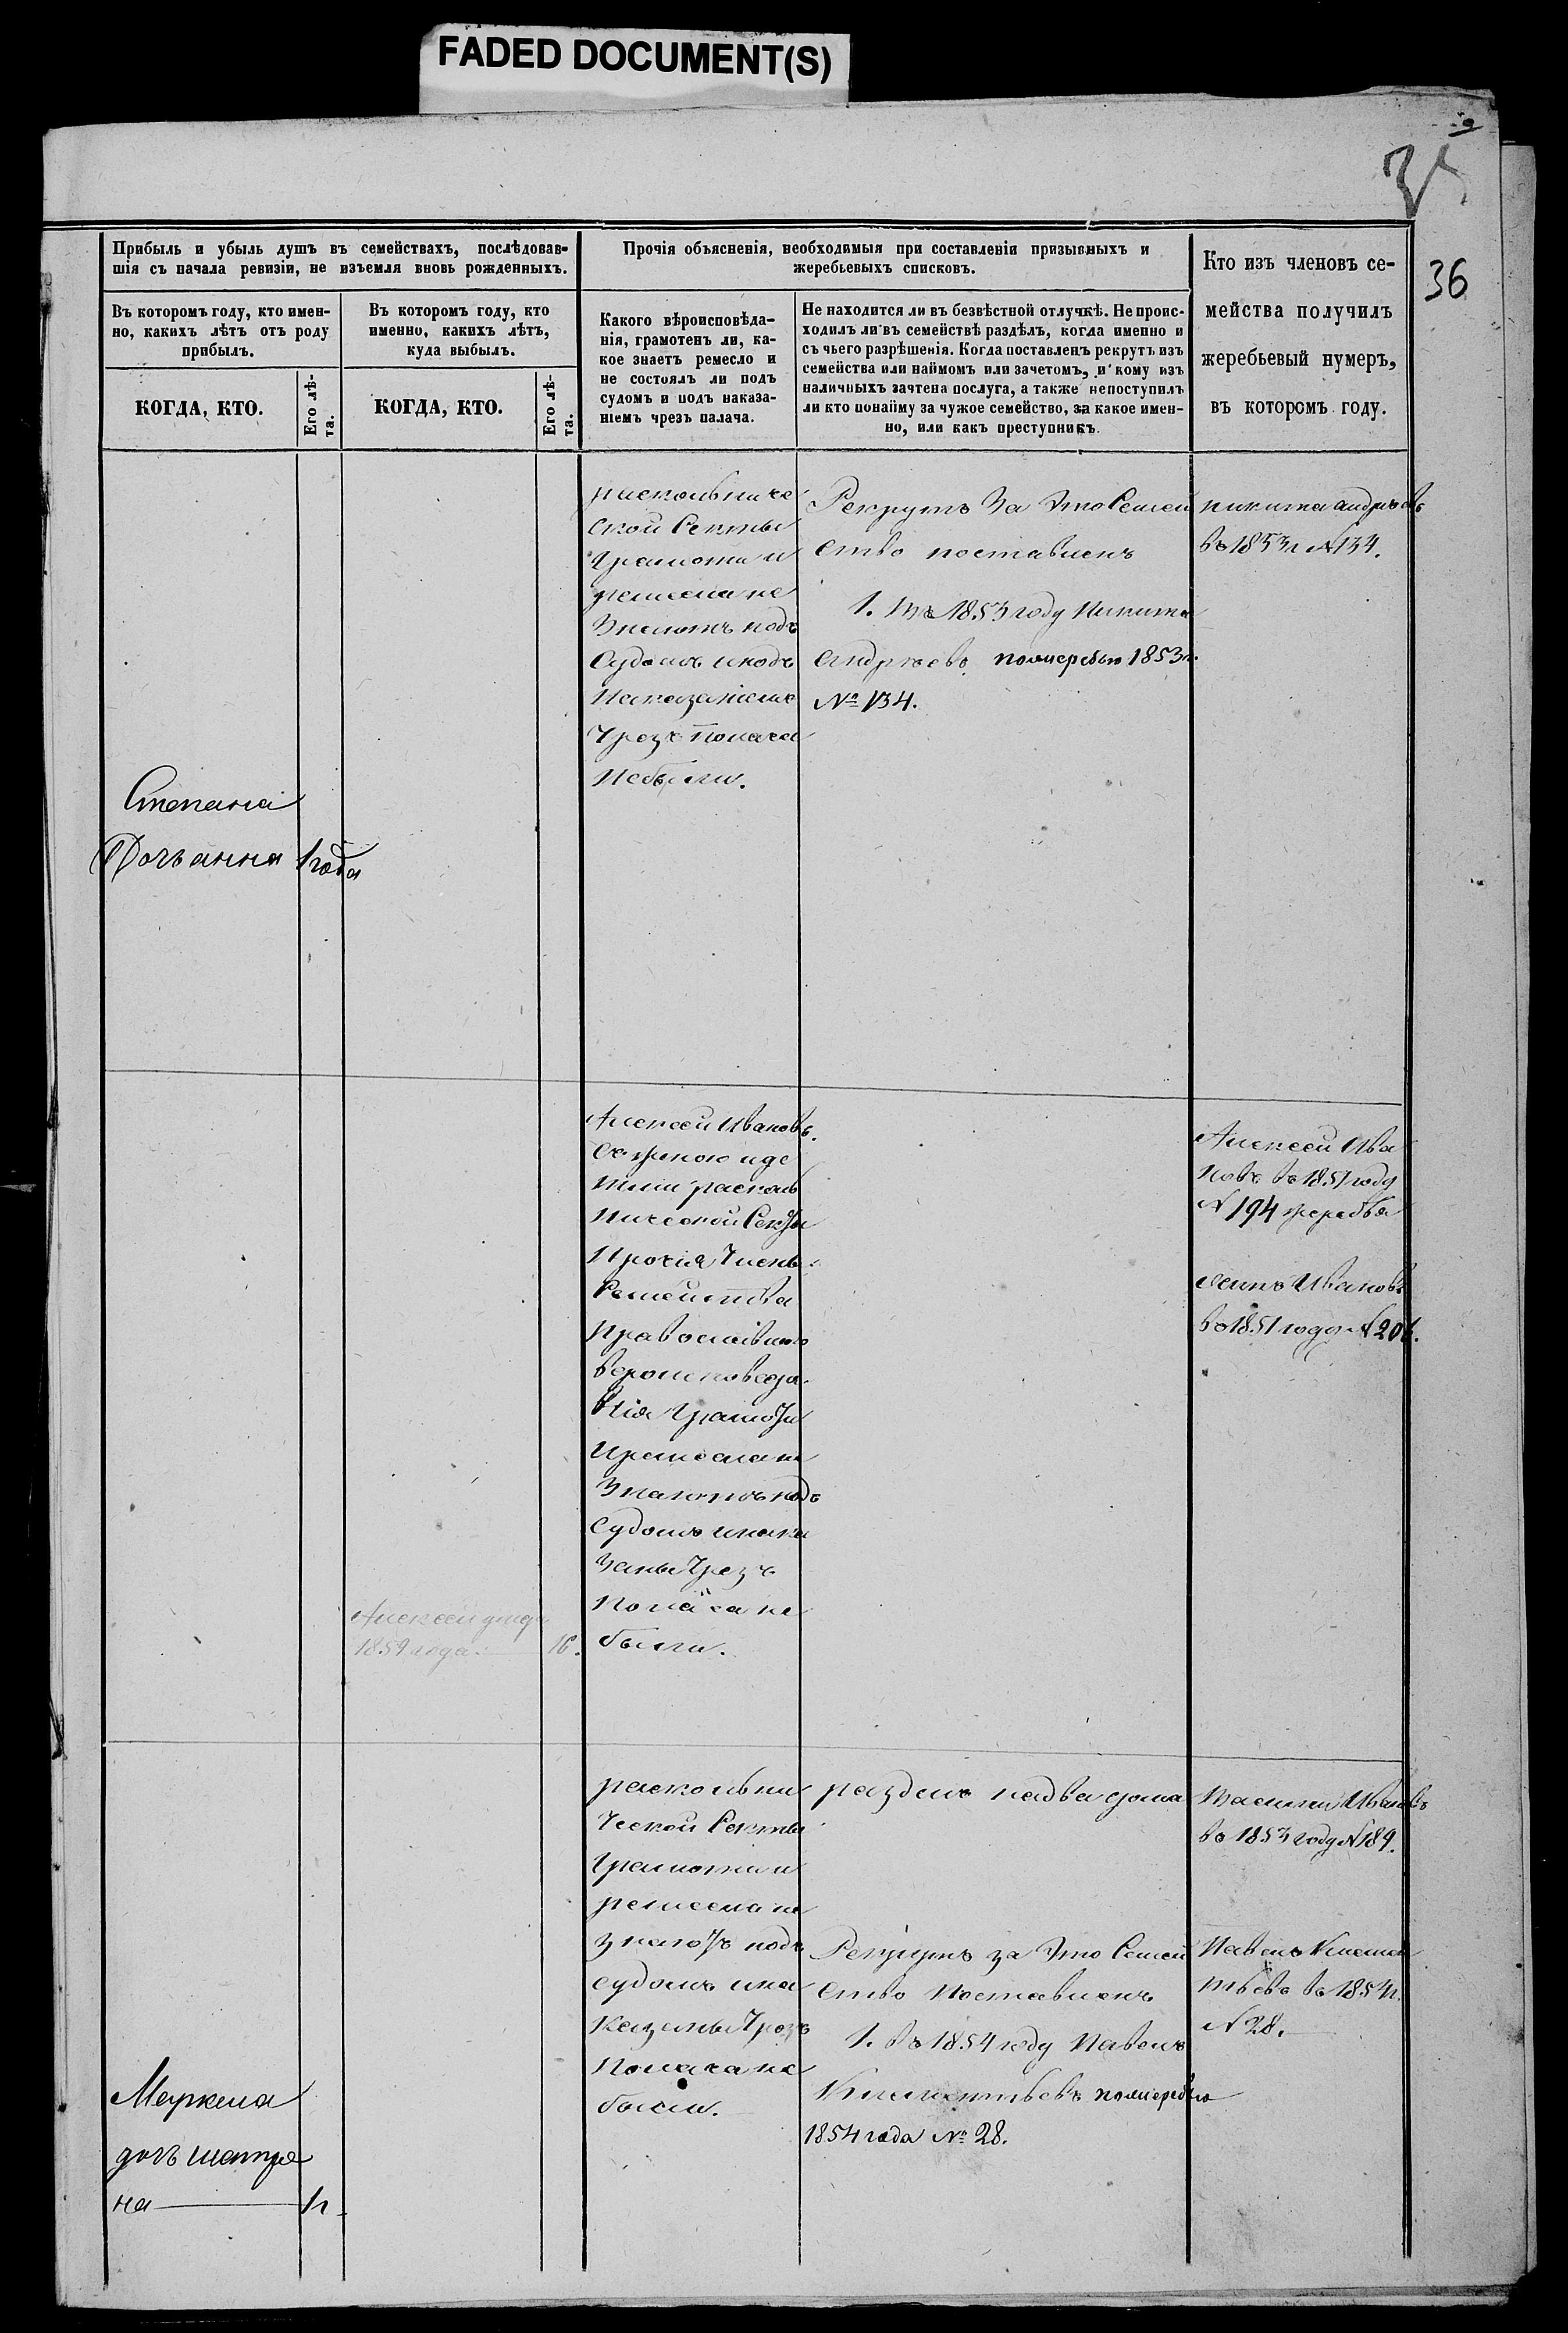 FADED DOCUMENT(S)
36
Прибыль и убыль душъ въ семействахъ, послѣдовав-
шія съ начала ревизіи, не изъемля вновь рожденныхъ.
Прочія объясненія, необходимыя при составленіи призывныхъ и
жеребьевыхъ списковъ.
Кто изъ членовъ се-
мейства получилъ
жеребьевый нумеръ,
въ которомъ году.
Въ которомъ году, кто имен-
но, какихъ лѣтъ отъ роду
прибылъ.
Въ которомъ году, кто
именно, какихъ лѣтъ,
куда выбылъ.
Какого вѣроисповѣда-
нія, грамотенъ ли, ка-
кое знаетъ ремесло и
не состоялъ ли подъ
судомъ и подъ наказа-
ніемъ чрезъ палача.
Не находится ли въ безвѣстной отлучкѣ. Не проис-
ходилъ ли въ семействѣ раздѣлъ, когда именно и
съ чьего разрѣшенія. Когда поставленъ рекрутъ изъ
семейства или наймомъ или зачетомъ, и кому изъ
наличныхъ зачтена послуга, а также непоступилъ
ли кто понайму за чужое семейство, за какое имен-
но, или какъ преступникъ.
КОГДА, КТО.
Его лѣ-
та.
КОГДА, КТО.
Его лѣ-
та.
раскольниче
ской Секты
Грамоты и
ремесла не
Знаютъ подъ
Судомъ иподъ
Наказаніемъ
Чрезъ Полача
Небыли.
Рекрутъ За Это Семей
ство поставленъ
1. Въ 1853 году Никита
Андрѣевъ пожеребью 1853г.
№ 134.
никита андрѣевъ
въ 1853г №134.
Степана
Дочь анна 1 года
Алексей Ивановъ
Съ женою иде
тьми расколь
нической Секты
Прочія Члены
Семейства
православнаго
вероисповеда
нія Грамоты
Иремесла не
Знаютъ подъ
Судомъ инака
Заны Чрезъ
Полача не
были.
Алексей Ива
новъ въ 1851 году
№ 194 жеребья
Ивановъ
въ 1851 году №
Алексей
1859 года 16.
раскольни
ческой Секты
Грамоты и
ремесла не
знаютъ подъ
судомъ ина
казаны Чрезъ
Полача не
были.
разделъ надва дома
Рекрутъ за Это Семей
ство Поставленъ
1. въ 1854 году Павелъ
Климентьевъ пожеребью
1854 года № 28.
Василий Ивановъ
въ 1853 году №189.
Павелъ Климен
тьевъ въ 1854г.
№ 28.
Меркела
дочь матре
на 1г.